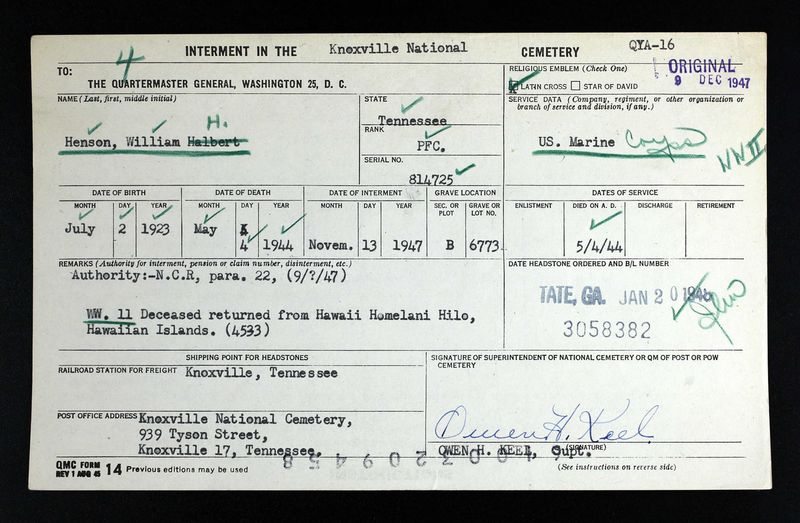 4
INTERMENT IN THE Knoxville National CEMETERY QYA-16
TO:
THE QUARTERMASTER GENERAL, WASHINGTON 25, D. C.
RELIGIOUS EMBLEM (Check One)
LATIN CROSS STAR OF DAVID
ORIGINAL
9 DEC 1947
NAME (Last, first, middle initial)
Henson, William Halbert H.
STATE
Tennessee
RANK
PFC.
SERIAL NO.
814725
SERVICE DATA (Company, regiment, or other organization or branch of service and division, if any.)
US. Marine Corps
WW II
DATE OF BIRTH DATE OF DEATH DATE OF INTERMENT GRAVE LOCATION DATES OF SERVICE
MONTH DAY YEAR MONTH DAY YEAR MONTH DAY YEAR SEC. OR PLOT GRAVE OR LOT NO. ENLISTMENT DIED ON A. D. DISCHARGE RETIREMENT
July 2 1923 May 4 1944 Novem. 13 1947 B 6773 5/4/44
REMARKS (Authority for interment, pension or claim number, disinterment, etc.)
Authority:-N.C.R, para. 22, (9/?/47)
WW. 11 Deceased returned from Hawaii Homelani Hilo,
Hawaiian Islands. (4533)
DATE HEADSTONE ORDERED AND B/L NUMBER
TATE, GA. JAN 20 1948
3058382
SHIPPING POINT FOR HEADSTONES
RAILROAD STATION FOR FREIGHT Knoxville, Tennessee
POST OFFICE ADDRESS Knoxville National Cemetery,
939 Tyson Street,
Knoxville 17, Tennessee.
SIGNATURE OF SUPERINTENDENT OF NATIONAL CEMETERY OR QM OF POST OR POW CEMETERY
Owen H. Keel
OWEN H. KEEL, Supt.
(SIGNATURE)
QMC FORM
REV 1 AUG 45 14 Previous editions may be used
(See instructions on reverse side)